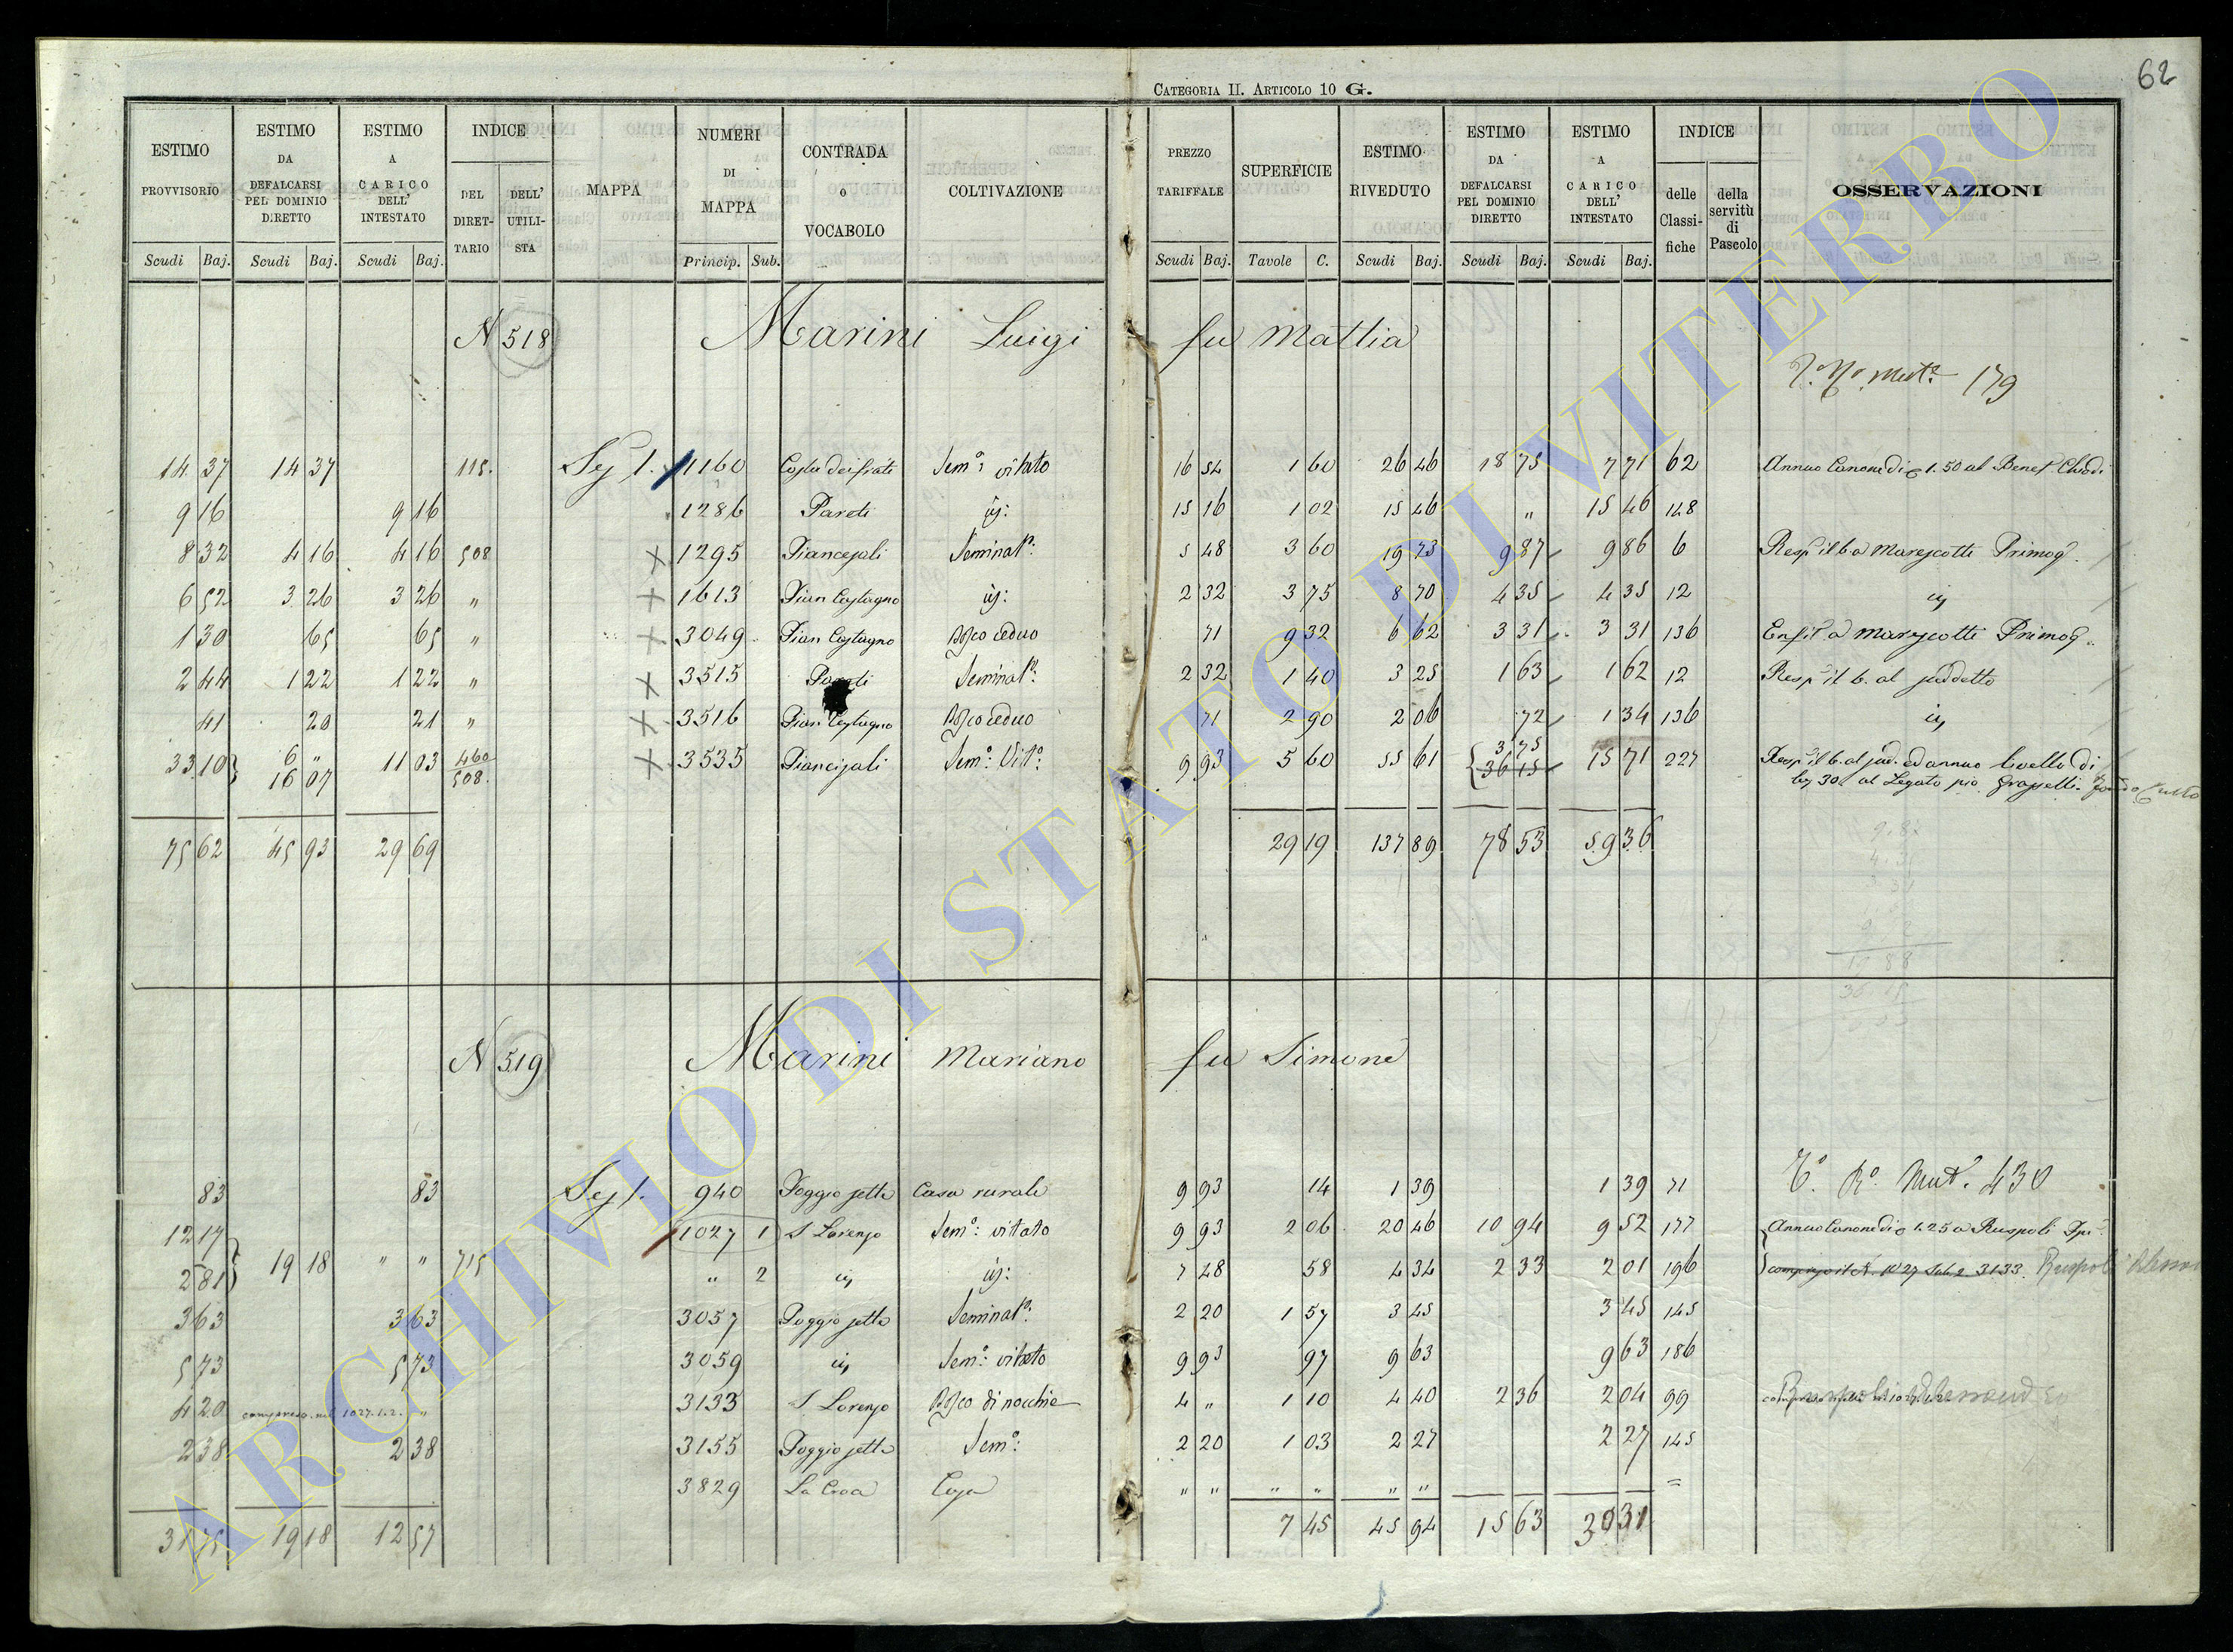 62
CATEGORIA II. ARTICOLO 10 G.
ESTIMO PROVVISORIO Scudi Baj. ESTIMO DA DEFALCARSI PEL DOMINIO DIRETTO Scudi Baj. ESTIMO A CARICO DELL' INTESTATO Scudi Baj. INDICE DEL DIRETTARIO DELL' UTILISTA MAPPA NUMERI DI MAPPA Princip. Sub. CONTRADA o VOCABOLO COLTIVAZIONE PREZZO TARIFFALE Scudi Baj. SUPERFICIE Tavole C. ESTIMO RIVEDUTO Scudi Baj. ESTIMO DA DEFALCARSI PEL DOMINIO DIRETTO Scudi Baj. ESTIMO A CARICO DELL' INTESTATO Scudi Baj. INDICE delle Classifiche della servitù di Pascolo OSSERVAZIONI
N 518 Marini Luigi fu Mattia
Mut. 179
14 37 14 37 115. Sez 1. 1160 Costa dei frati Sem.o vitato 16 54 1 60 26 46 18 75 7 71 62 Annuo Canone di 1.50 al Benef.
9 16 9 16 1286 Pareti id: 15 16 1 02 15 46 " 15 46 148
8 32 4 16 4 16 508 X 1295 Piancejali Seminat.o: 5 48 3 60 19 73 9 87 9 86 6 Resp il 6.a Marescotti Primog.
6 52 3 26 3 26 " X 1613 Pian Castagno id: 2 32 3 75 8 70 4 35 4 35 12 id
1 30 65 65 " X 3049 Pian Castagno Bosco ceduo 71 9 32 6 62 3 31 3 31 136 Enfit. a Marescotti Primog.
2 44 1 22 1 22 " X 3515 Pareti Seminat.o: 2 32 1 40 3 25 1 63 1 62 12 Resp il 6. al suddetto
41 20 21 " X 3516 Pian Castagno Bosco ceduo 71 2 90 2 06 72 1 34 136 id
33 10 } 6 " 16 07 11 03 460 508. X 3535 Piancijali Sem.o: Vit.o: 9 93 5 60 55 61 { 3 75 36 15 15 71 227 Resp il 6. al sud. ed annuo livello di
30 al Legato pio Grasselli.
75 62 45 93 29 69 29 19 137 89 78 53 59 36
N 519 Marini Mariano fu Simone
Mut. 430
83 83 Sez 1. 940 Poggio sette Casa rurale 9 93 14 1 39 1 39 71
12 17 } 19 18 " " 715 1027 1 S Lorenzo Sem.o: vitato 9 93 2 06 20 46 10 94 9 52 177 Annuo Canone di 1.25 a Ruspoli
2 81 } " 2 id id: 7 48 58 4 34 2 33 2 01 196 compreso il N. 1027 Sub. 2 3133. Ruspoli
3 63 3 63 3057 Poggio sette Seminat.o: 2 20 1 57 3 45 3 45 145
5 73 5 73 3059 id Sem.o: vitato 9 93 97 9 63 9 63 186
4 20 compreso nel 1027.1.2. " 3133 S Lorenzo Bosco di nocchie 4 " 1 10 4 40 2 36 2 04 99
2 38 2 38 3155 Poggio sette Sem.o: 2 20 1 03 2 27 2 27 145
3829 La Croce Casa " " " " " " =
31 75 19 18 12 57 7 45 45 94 15 63 30 31
ARCHIVIO DI STATO DI VITERBO